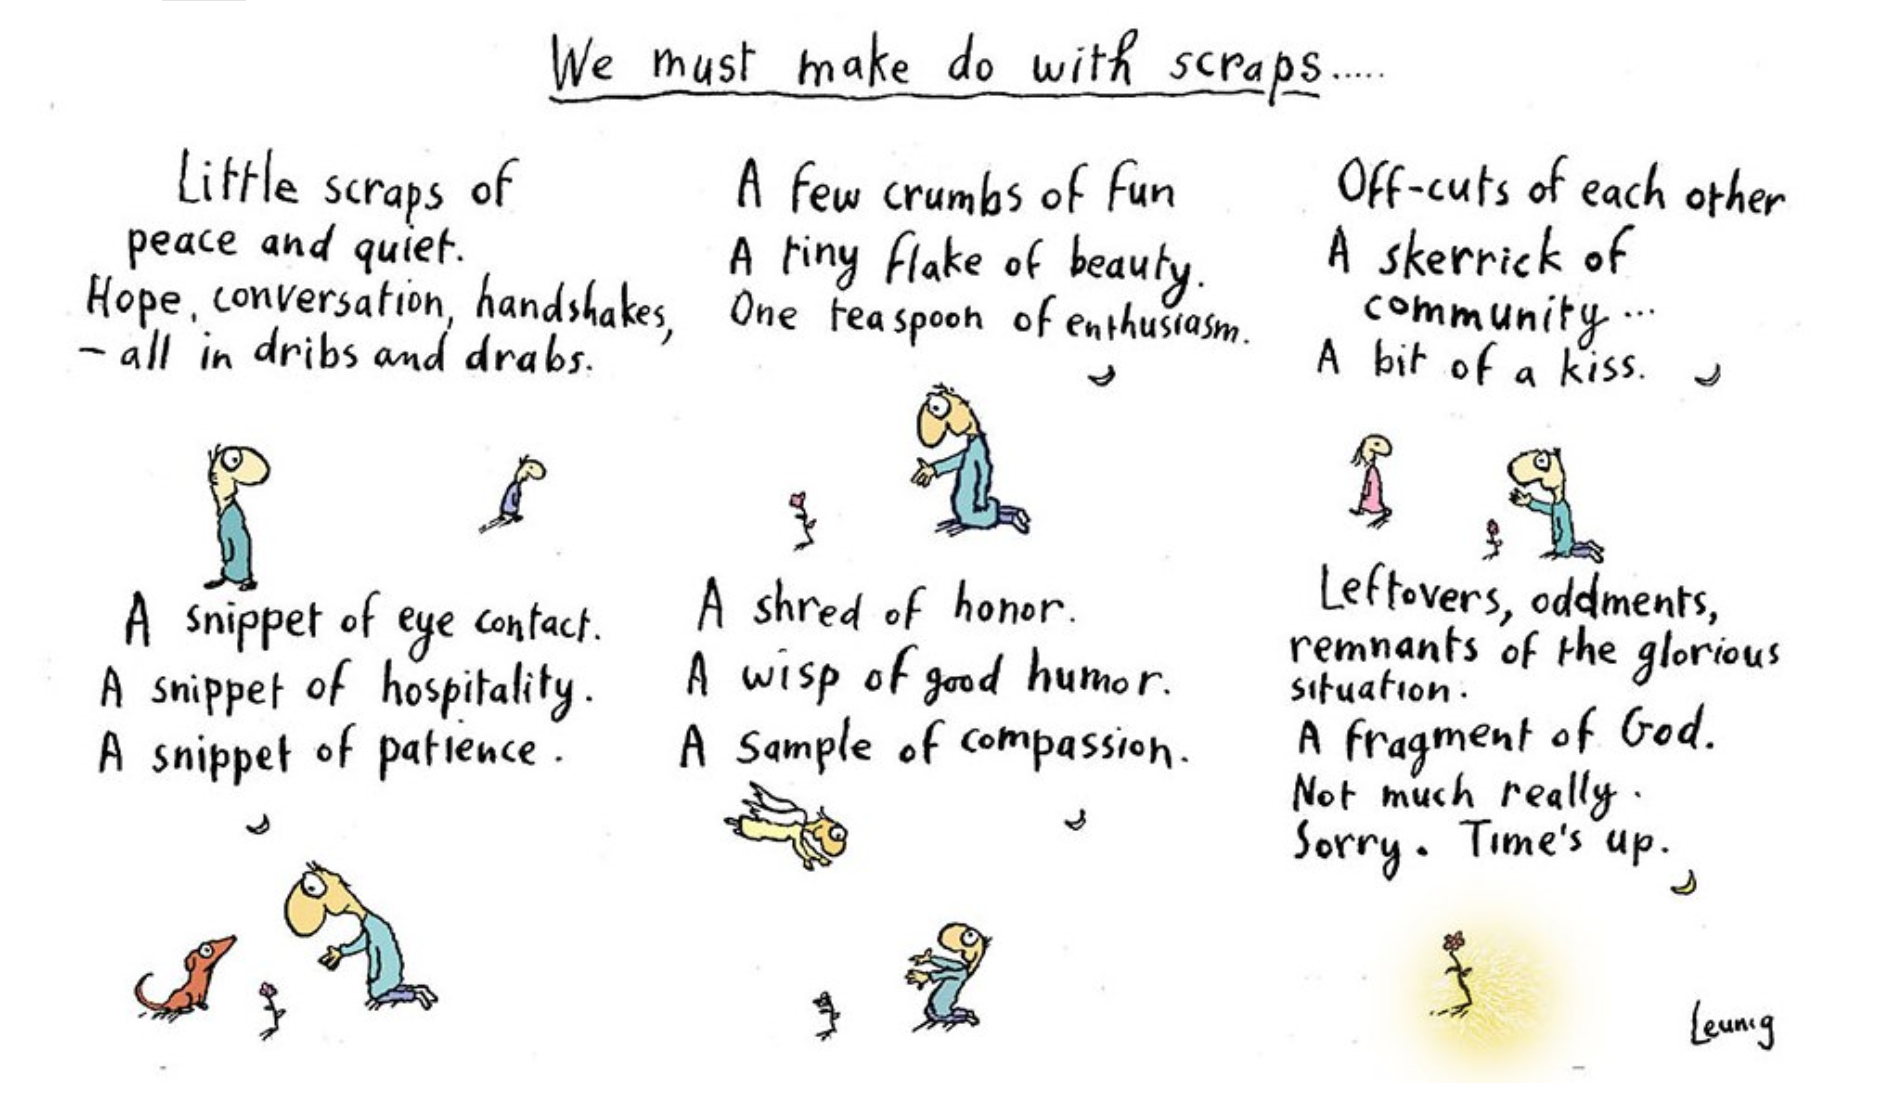 We must make do with scraps.....
Little scraps of
peace and quiet.
Hope, conversation, handshakes,
- all in dribs and drabs.
A few crumbs of fun
A tiny flake of beauty.
One teaspoon of enthusiasm.
Off-cuts of each other
A skerrick of
community...
A bit of a kiss.
A snippet of eye contact.
A snippet of hospitality.
A snippet of patience.
A shred of honor.
A wisp of good humor.
A sample of compassion.
Leftovers, oddments,
remnants of the glorious
situation.
A fragment of God.
Not much really.
Sorry. Time's up.
Leunig